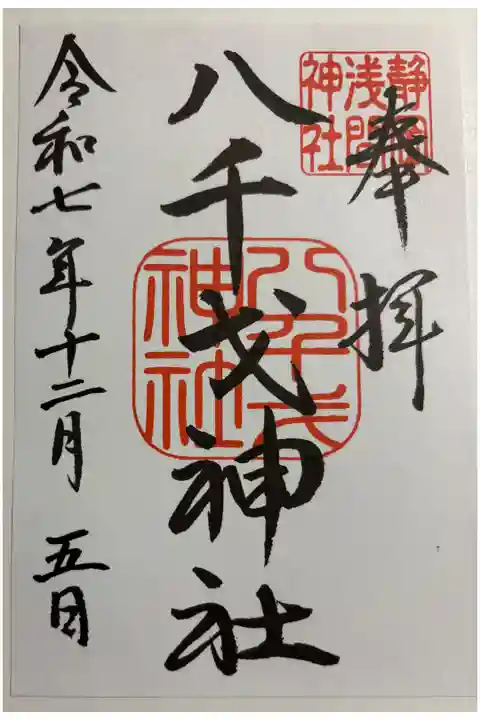 静岡
浅間
神社
奉拝
八千戈神社
八千戈
神社
令和七年十二月 五日